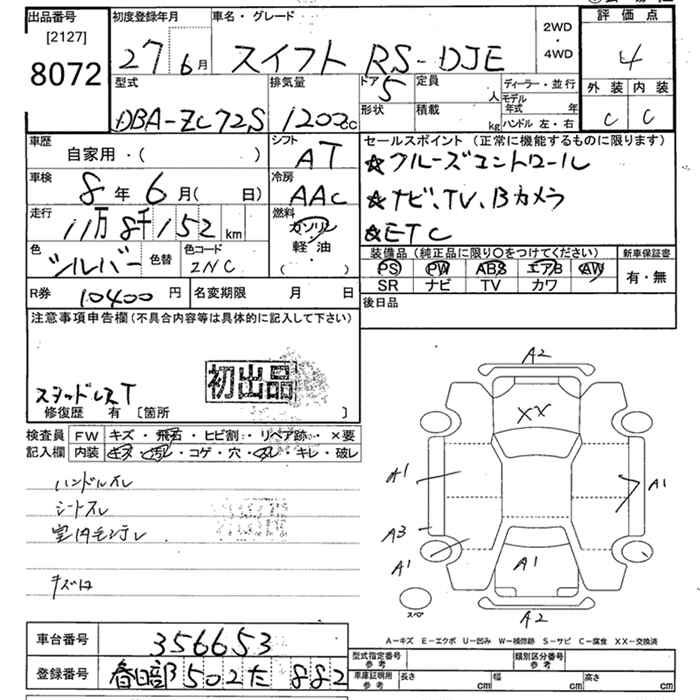 出品番号 初度登録年月 車名・グレード 2WD・4WD 評価点
[2127]
8072 27 6月 スイフト RS-DJE 4
型式 排気量 ドア 5 定員 人 ディーラー・並行 外装 内装
DBA-ZC72S 1200cc 形状 積載 kg モデル年式 年 ハンドル 左・右 C C
車歴 自家用・( ) シフト AT セールスポイント (正常に機能するものに限ります)
☆クルーズコントロール
車検 8年 6月( 日) 冷房 AAC ☆ナビ、TV、Bカメラ
走行 11万8千152 km 燃料 ガソリン ☆ETC
軽・油
・( )
色 シルバー 色替 色コード ZNC 装備品 (純正品に限り○をつけてください) 新車保証書
PS PW ABS エアB AW 有・無
SR ナビ TV カワ
R券 10400 円 名変期限 月 日 後日品
注意事項申告欄(不具合内容等は具体的に記入して下さい)
初出品
スタッドレスT
修復歴 有 [箇所 ]
検査員記入欄 FW キズ・飛石・ヒビ割・リペア跡・×要
内装 キズ・汚レ・コゲ・穴・スレ・キレ・破レ
ハンドルスレ
シートスレ
A2
XX
A1 A1
A3
A1 A1
スペア A2
A-キズ E-エクボ U-凹み W-補修跡 S-サビ C-腐食 XX-交換済
車台番号 356653 型式指定番号 参考 類別区分番号 参考
登録番号 春日部502た882 車庫証明用 参考 長さ cm 幅 cm 高さ cm